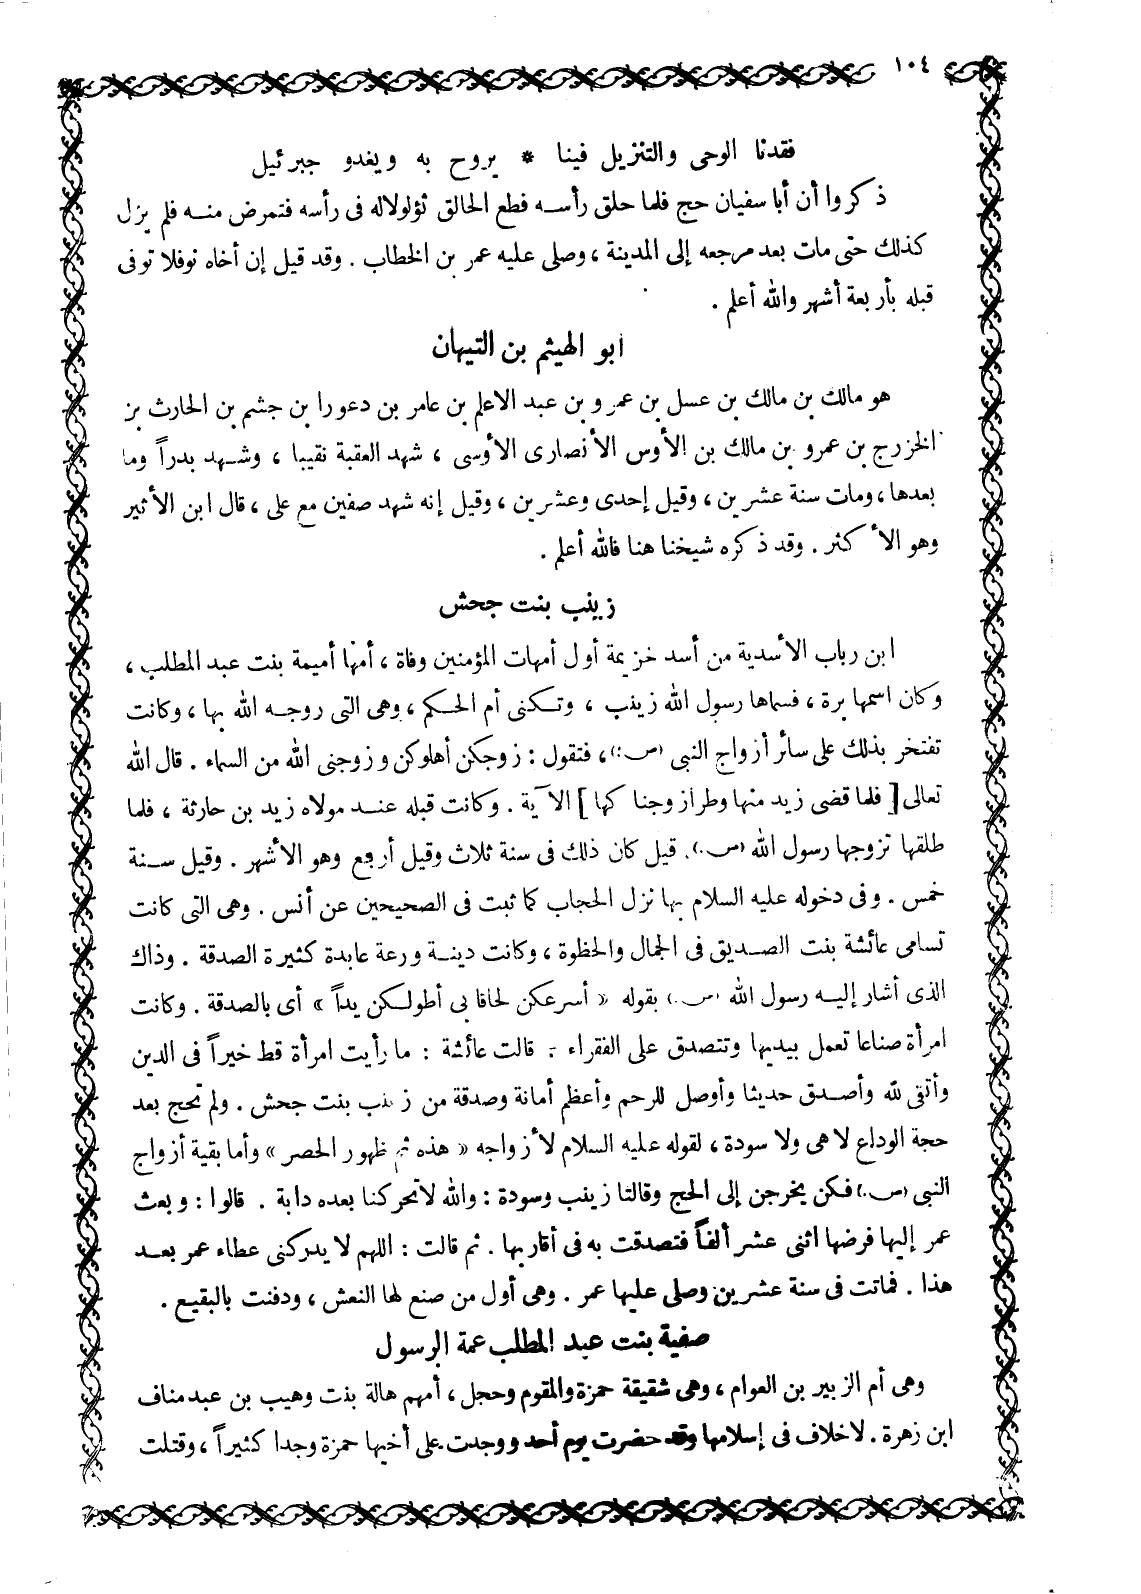 ١٠٤
فقدنا الوحى والتنزيل فينا * يروح به ويغدو جبرئيل
ذكروا أن أبا سفيان حج فلما حلق رأسه قطع الحالق ثؤلولاله فى رأسه فتمرض منه فلم يزل
كذلك حتى مات بعد مرجعه إلى المدينة ، وصلى عليه عمر بن الخطاب . وقد قيل إن أخاه نوفلا توفى
قبله بأربعة أشهر والله أعلم .
ابو الهيثم بن التيهان
هو مالك بن مالك بن عسل بن عمرو بن عبد الاعلم بن عامر بن دعورا بن جشم بن الحارث بن
الخزرج بن عمرو بن مالك بن الأوس الأنصارى الأوسى ، شهد العقبة نقيبا ، وشهد بدراً وما
بعدها ، ومات سنة عشرين ، وقيل إحدى وعشرين ، وقيل إنه شهد صفين مع على ، قال ابن الأثير
وهو الأكثر . وقد ذكره شيخنا هنا فالله أعلم .
زينب بنت جحش
ابن رباب الأسدية من أسد خزيمة أول أمهات المؤمنين وفاة ، أمها أميمة بنت عبد المطلب ،
وكان اسمها برة ، فسماها رسول الله زينب ، وتكنى أم الحكم ، وهى التى زوجه الله بها ، وكانت
تفتخر بذلك على سائر أزواج النبى (ص.) ، فتقول : زوجكن أهلوكن وزوجنى الله من السماء . قال الله
تعالى [ فلما قضى زيد منها وطرا زوجنا كها ] الآية . وكانت قبله عند مولاه زيد بن حارثة ، فلما
طلقها تزوجها رسول الله (ص.). قيل كان ذلك فى سنة ثلاث وقيل أربع وهو الأشهر . وقيل سنة
خمس . وفى دخوله عليه السلام بها نزل الحجاب كما ثبت فى الصحيحين عن أنس . وهى التى كانت
تسامى عائشة بنت الصديق فى الجمال والحظوة ، وكانت دينة ورعة عابدة كثيرة الصدقة . وذاك
الذى أشار إليه رسول الله (ص.) بقوله « أسرعكن لحاقا بى أطولكن يداً » أى بالصدقة . وكانت
امرأة صناعا تعمل بيديها وتتصدق على الفقراء . قالت عائشة : ما رأيت امرأة قط خيراً فى الدين
وأتقى لله وأصدق حديثا وأوصل للرحم وأعظم أمانة وصدقة من زينب بنت جحش . ولم تحج بعد
حجة الوداع لا هى ولا سودة ، لقوله عليه السلام لأزواجه « هذه ثم ظهور الحصر » وأما بقية أزواج
النبى (ص.) فكن يخرجن إلى الحج وقالتا زينب وسودة : والله لا تحركنا بعده دابة . قالوا : وبعث
عمر إليها فرضها اثنى عشر ألفاً فتصدقت به فى أقاربها . ثم قالت : اللهم لا يدركنى عطاء عمر بعد
هذا . فماتت فى سنة عشرين وصلى عليها عمر . وهى أول من صنع لها النعش ، ودفنت بالبقيع .
صفية بنت عبد المطلب عمة الرسول
وهى أم الزبير بن العوام ، وهى شقيقة حمزة والمقوم وحجل ، أمهم هالة بنت وهيب بن عبد مناف
ابن زهرة . لا خلاف فى إسلامها وقد حضرت يوم أحد ووجدت على أخيها حمزة وجدا كثيراً ، وقتلت